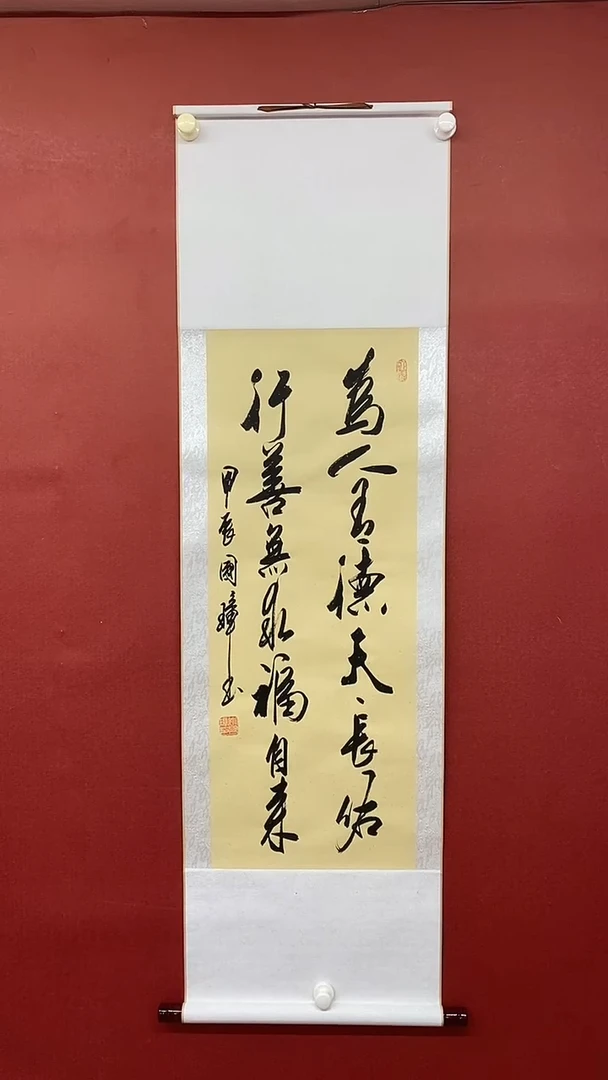 為人有德天長佑
行善無求福自來
甲辰國璋書